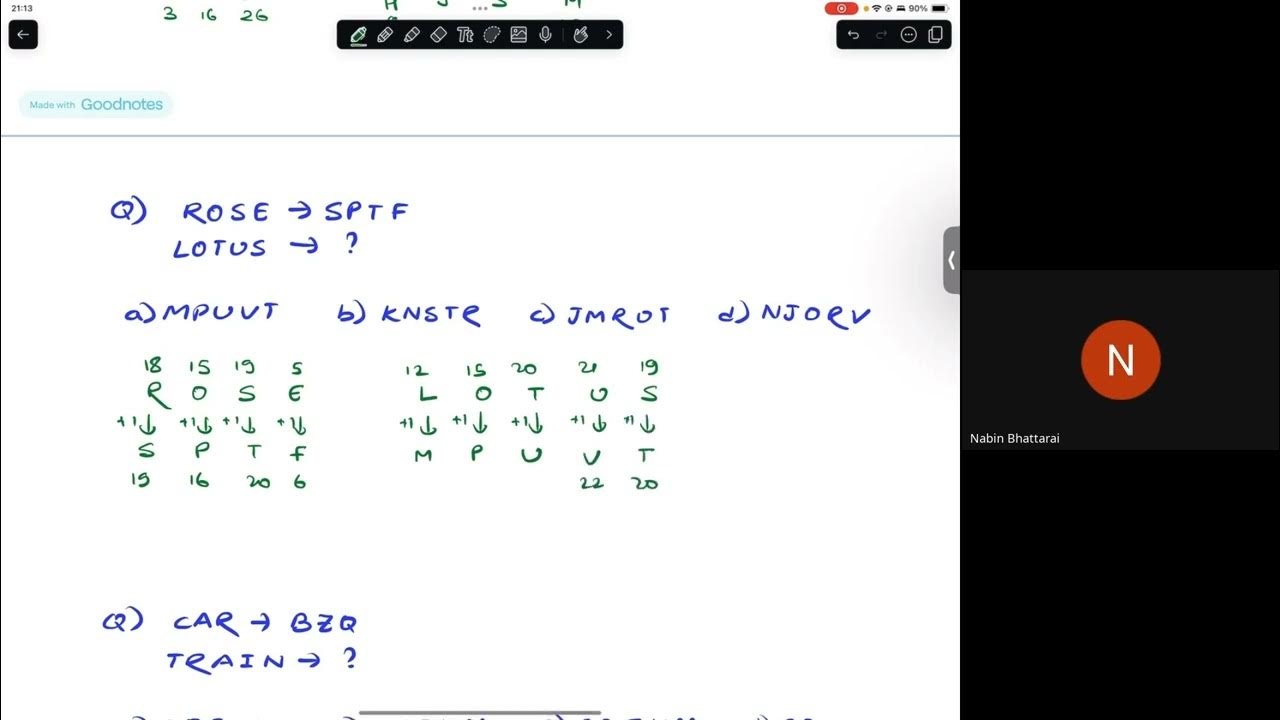 21:13
90%
3 16 26
Tt
Made with Goodnotes
Q) ROSE → SPTF
LOTUS → ?
a) MPUVT b) KNSTR c) JMROT d) NJORV
18 15 19 5 12 15 20 21 19
R O S E L O T U S
+1↓ +1↓ +1↓ +1↓ +1↓ +1↓ +1↓ +1↓ +1↓
S P T F M P U V T
19 16 20 6 22 20
Q) CAR → BZQ
TRAIN → ?
N
Nabin Bhattarai